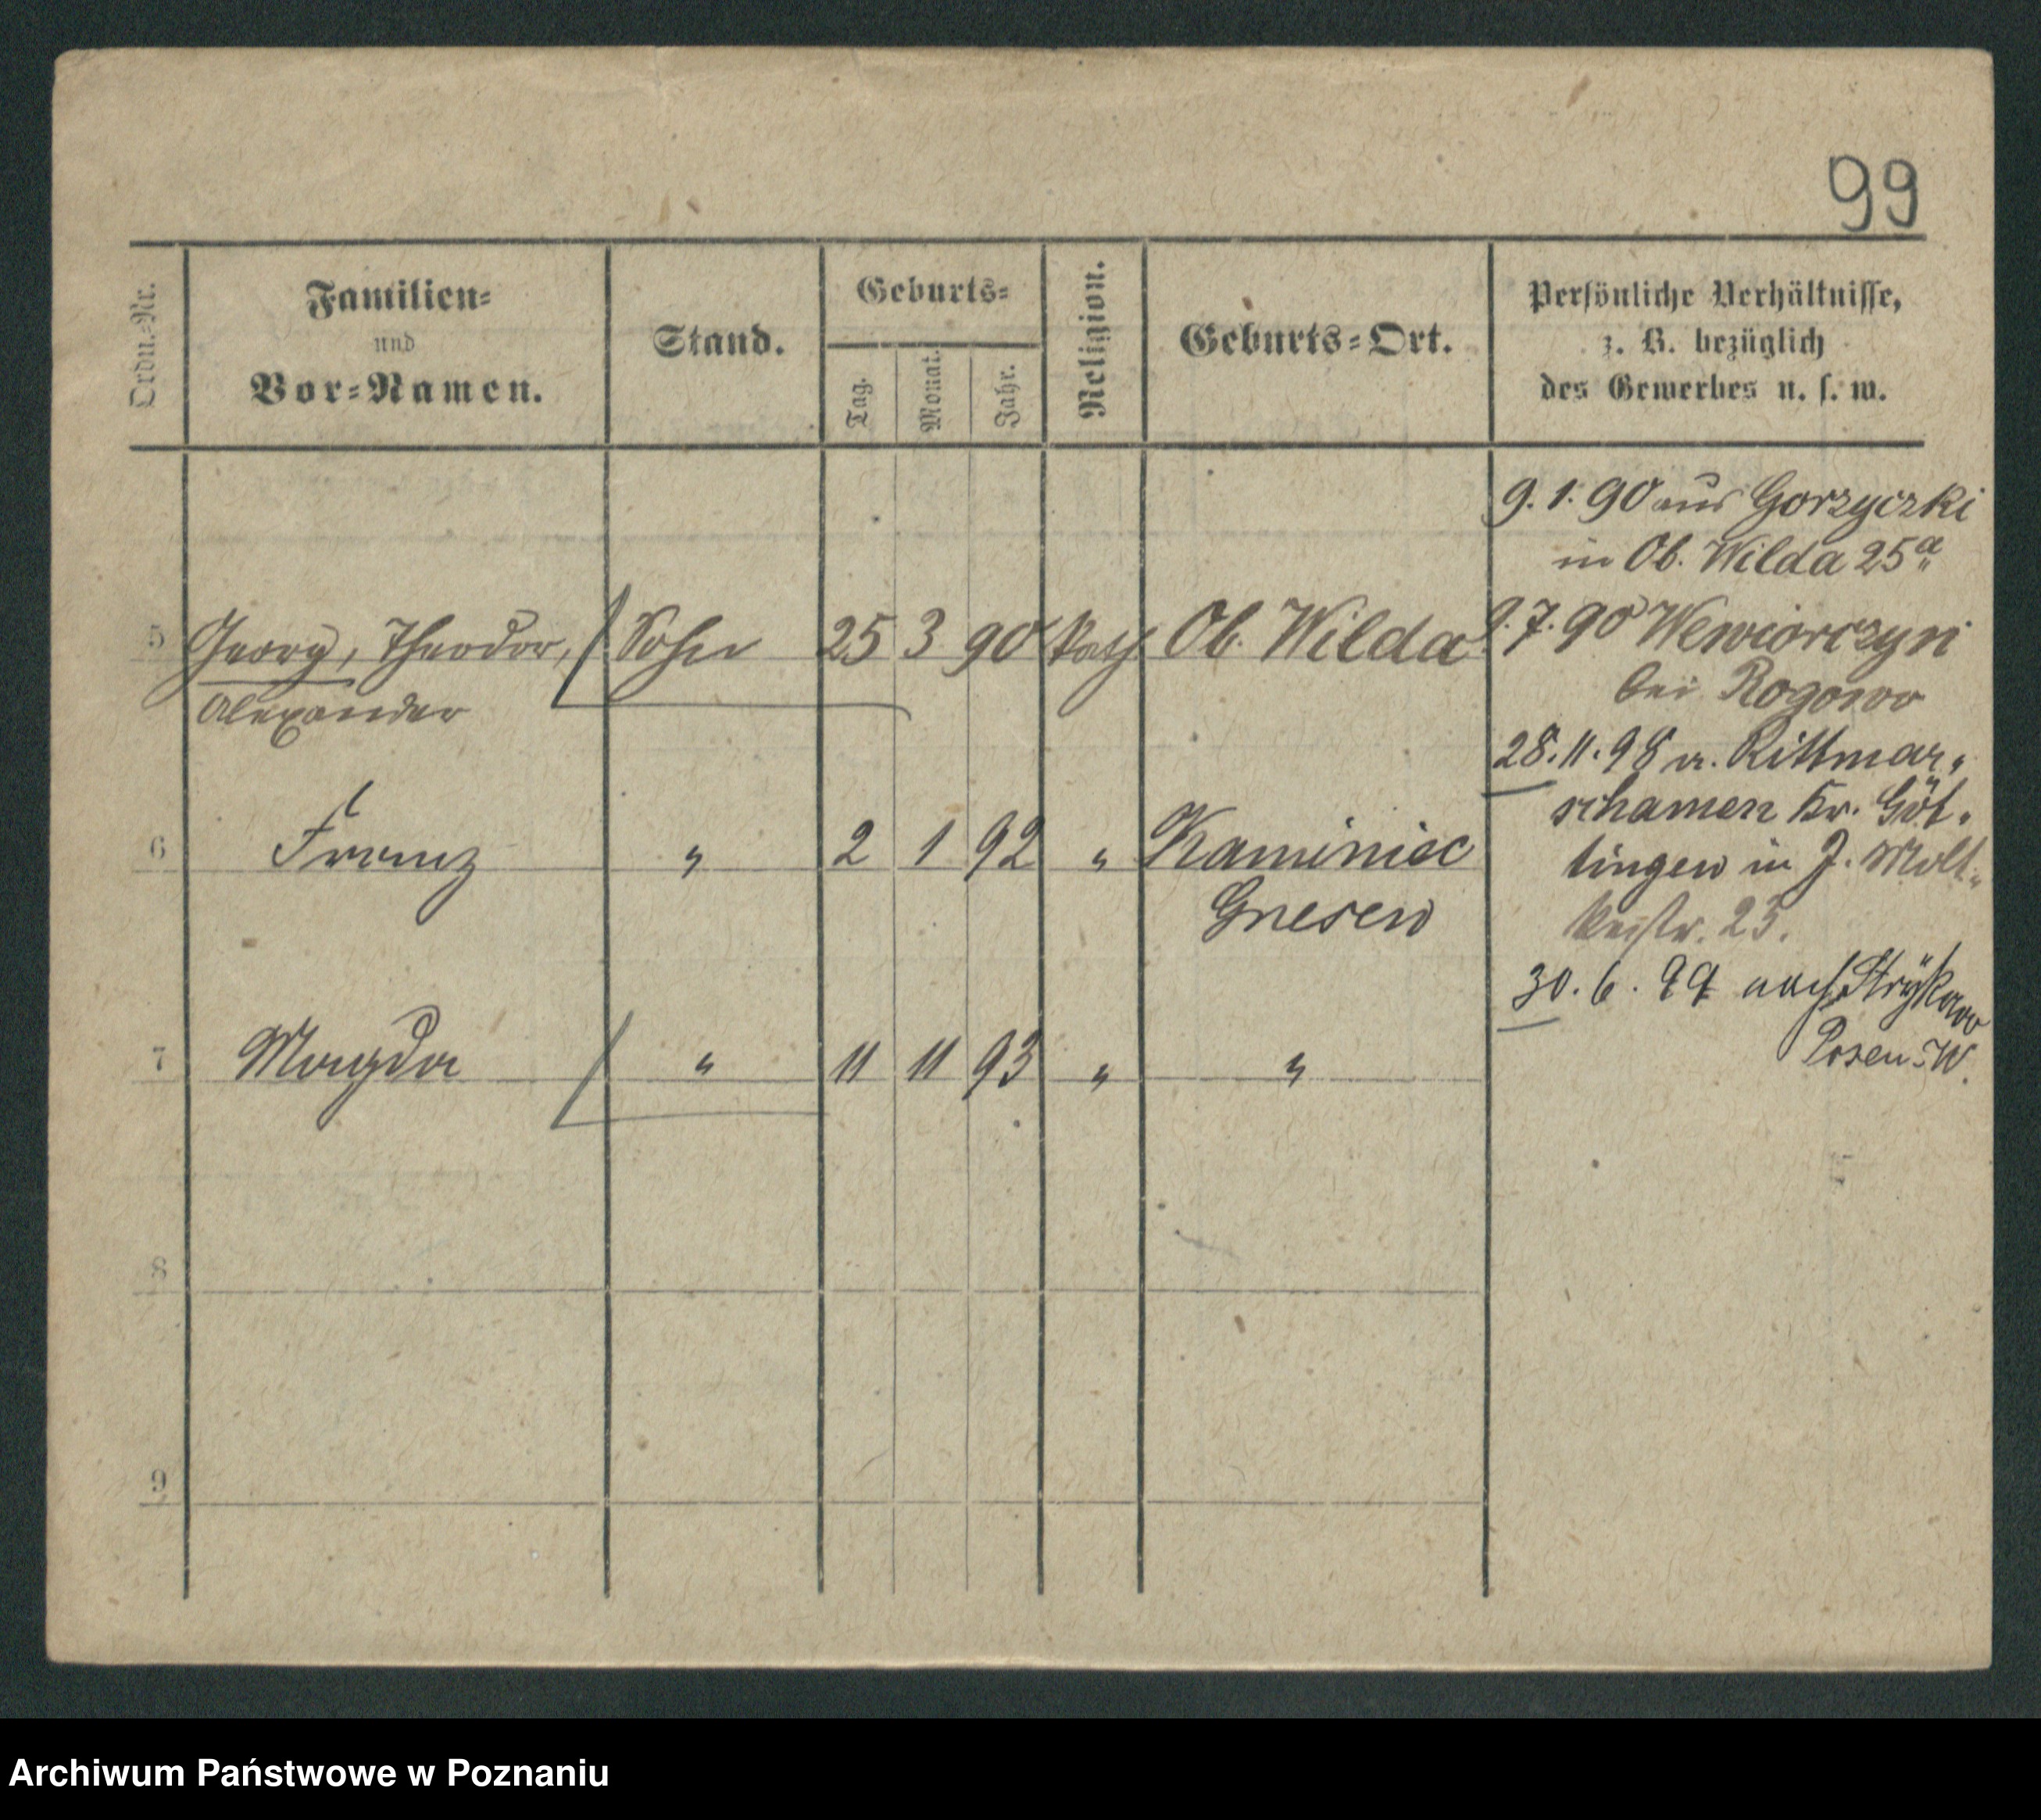 99
Ordn.-Nr.
Familien-
und
Vor-Namen.
Stand.
Geburts-
Tag.
Monat.
Jahr.
Religion.
Geburts-Ort.
Persönliche Verhältnisse,
z. B. bezüglich
des Gewerbes u. s. w.
9. 1. 90 aus Gorzyczki
in Ob. Wilda 25a
5 Georg, Theodor, Sohn 25 3 90 kath Ob. Wilda
Alexander
7. 90 Wewiorczyn
bei Rogowo
28. 11. 98 a. Rittmar-
schamen Kr. Göt-
tingen in J. Molt-
kestr. 23.
6 Franz " 2 1 92 " Kaminiec
Gnesen
30. 6. 99 nach Strÿkowo
Posen-W.
7 Magda " 11 11 93 " "
8
9
Archiwum Państwowe w Poznaniu